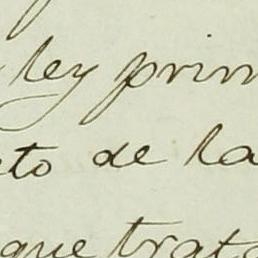 ley prim
to de la
que trata